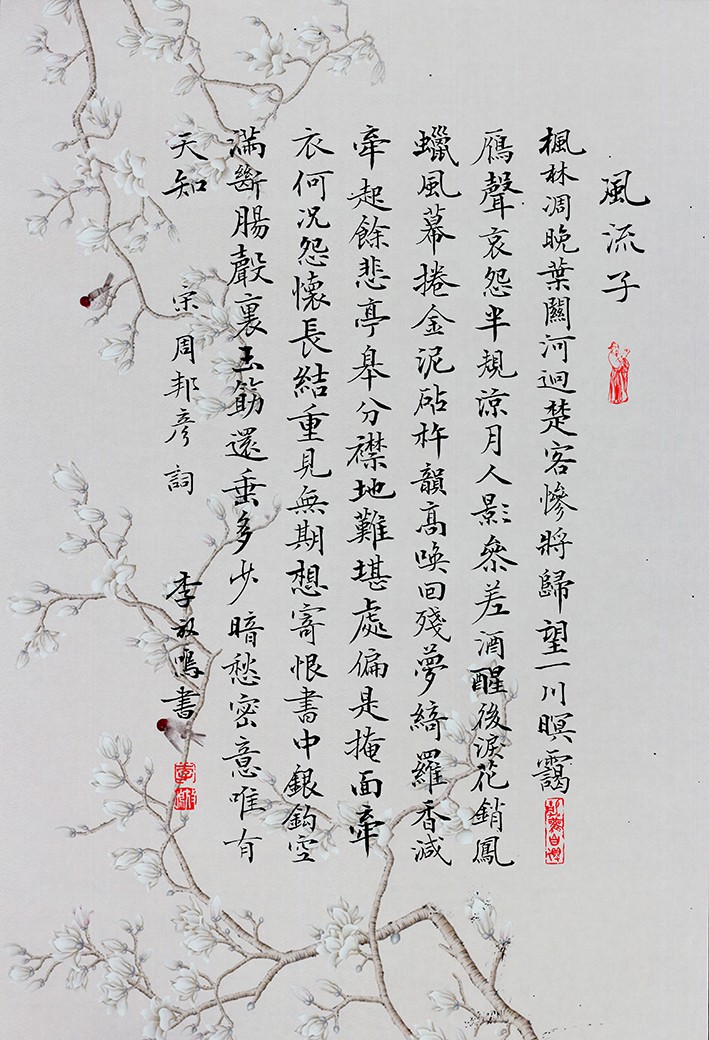 風流子
楓林凋晚葉關河迥楚客慘將歸望一川暝靄
鴈聲哀怨半規涼月人影參差酒醒後淚花銷鳳
蠟風幕捲金泥砧杵韻高喚回殘夢綺羅香減
牽起餘悲亭皋分襟地難堪處偏是掩面牽
衣何況怨懷長結重見無期想寄恨書中銀鈎空
滿斷腸聲裏玉筯還垂多少暗愁密意唯有
天知
宗周邦彥詞
李放鳴書